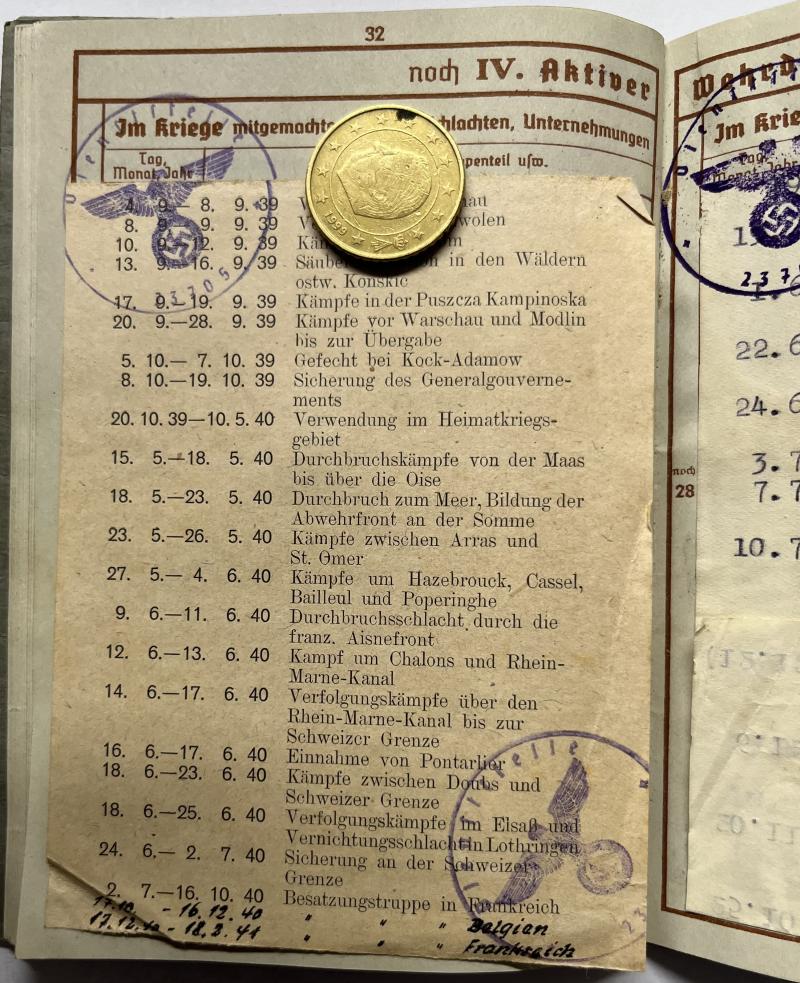 32
noch IV. Aktiver
Wehrd
Im Kriege mitgemachte Schlachten, Unternehmungen
Tag, Monat, Jahr
ppenteil usw.
4. 9.— 8. 9. 39
8. 9.— 9. 9. 39 wolen
10. 9.—12. 9. 39
13. 9.—16. 9. 39 in den Wäldern
ostw. Konskie
17. 9.—19. 9. 39 Kämpfe in der Puszcza Kampinoska
20. 9.—28. 9. 39 Kämpfe vor Warschau und Modlin
bis zur Übergabe
5. 10.— 7. 10. 39 Gefecht bei Kock-Adamow
8. 10.—19. 10. 39 Sicherung des Generalgouverne-
ments
20. 10. 39—10. 5. 40 Verwendung im Heimatkriegs-
gebiet
15. 5.—18. 5. 40 Durchbruchskämpfe von der Maas
bis über die Oise
18. 5.—23. 5. 40 Durchbruch zum Meer, Bildung der
Abwehrfront an der Somme
23. 5.—26. 5. 40 Kämpfe zwischen Arras und
St. Omer
27. 5.— 4. 6. 40 Kämpfe um Hazebrouck, Cassel,
Bailleul und Poperinghe
9. 6.—11. 6. 40 Durchbruchsschlacht durch die
franz. Aisnefront
12. 6.—13. 6. 40 Kampf um Chalons und Rhein-
Marne-Kanal
14. 6.—17. 6. 40 Verfolgungskämpfe über den
Rhein-Marne-Kanal bis zur
Schweizer Grenze
16. 6.—17. 6. 40 Einnahme von Pontarlier
18. 6.—23. 6. 40 Kämpfe zwischen Doubs und
Schweizer Grenze
18. 6.—25. 6. 40 Verfolgungskämpfe im Elsaß und
Vernichtungsschlacht in Lothringen
24. 6.— 2. 7. 40 Sicherung an der Schweizer
Grenze
2. 7.—16. 10. 40 Besatzungstruppe in Frankreich
17.10. - 16.12.40 " " " Belgien
17.12.40 - 18.2.41 " " " Frankreich
1999
23705
Im Krie
22.6
24.6
3.7
7.7
10.7
noch
28